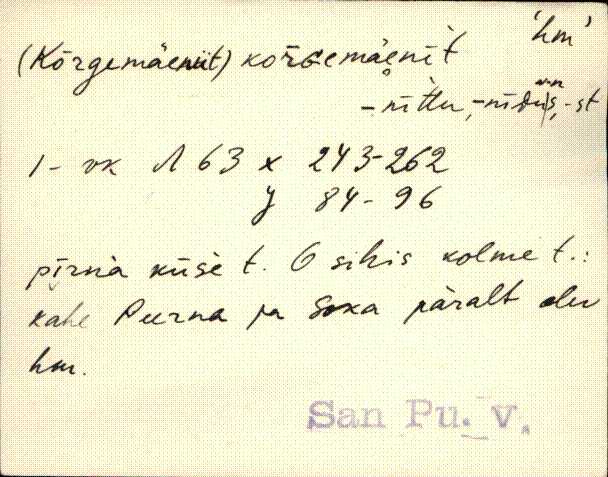 (Kõrgemäeniit) koŕGemäenīt 'hm'
-nìttu, -nīDùs, -st
1- vk Λ 63 x 243-262
y 84-96
pīrnà küsè t. 6 sihis kolme t.:
kahe Peerna ja Soka päralt olu
hm.
San Pu. V.